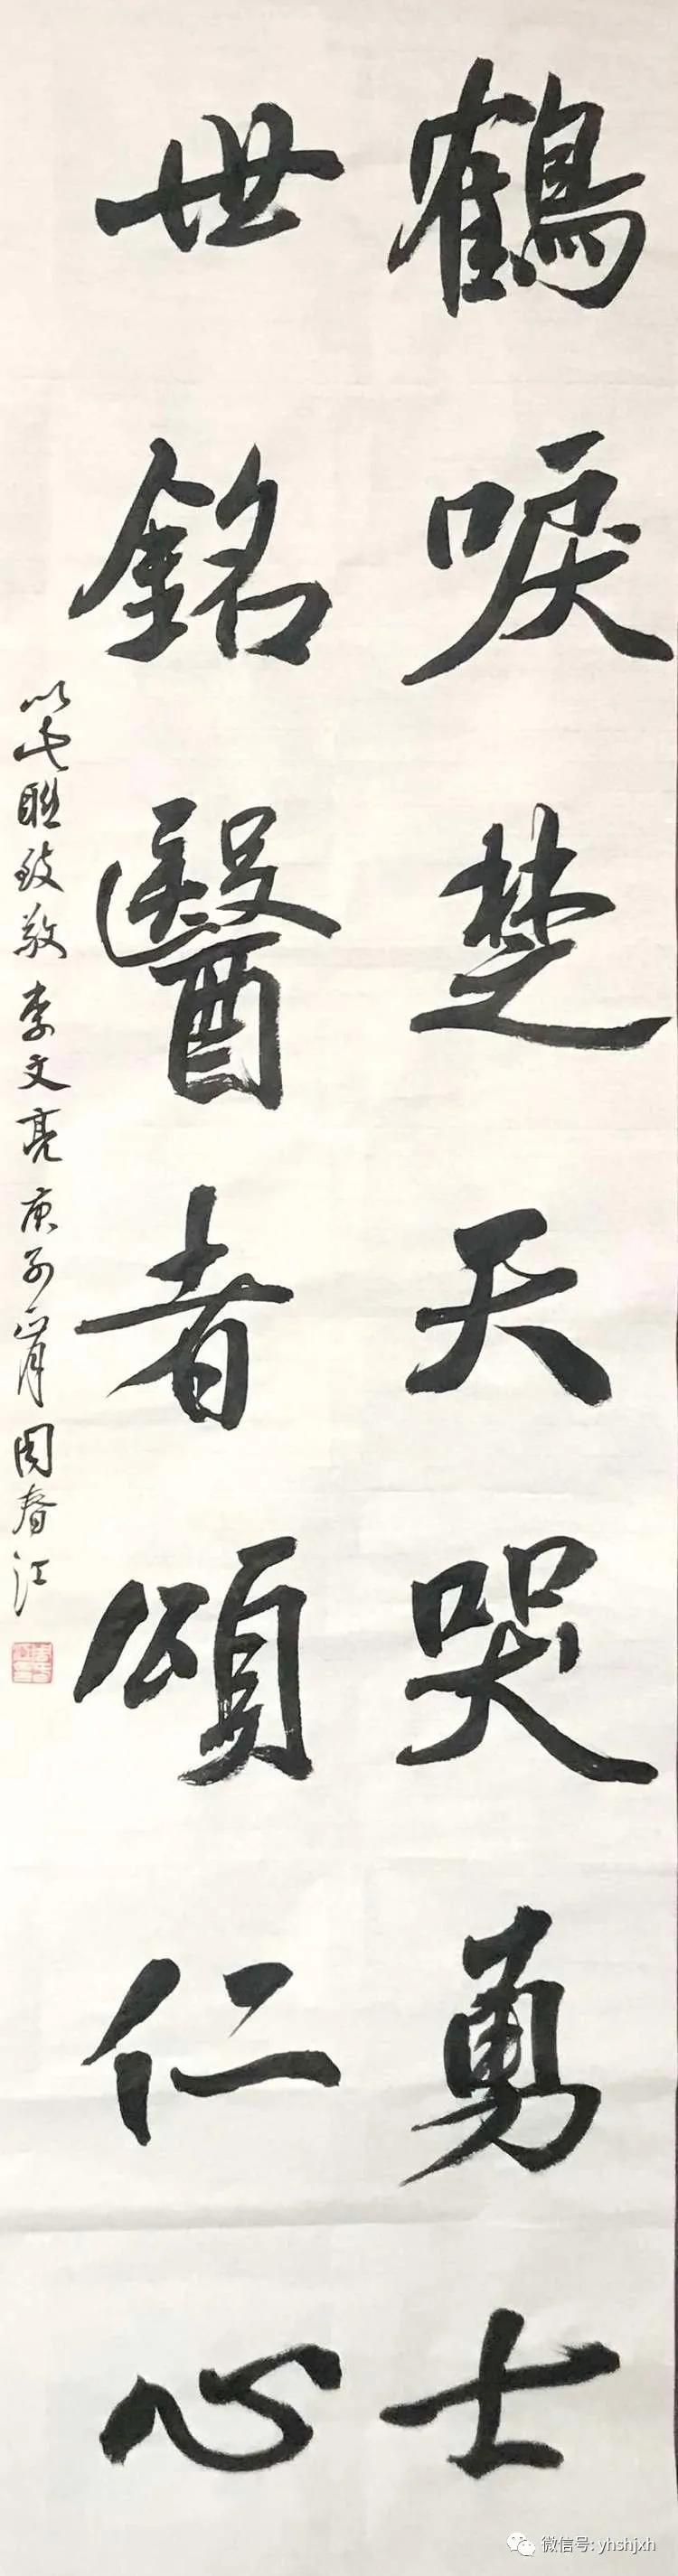 鶴唳楚天哭勇士
世銘醫者頌仁心
以此聯致敬李文亮庚子正月周春江
微信号: yhshjxh